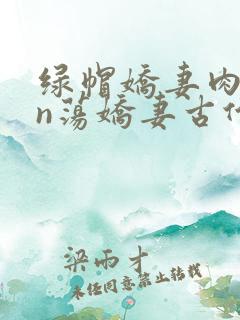 绿帽嬌妻肉
n蕩嬌妻古代
梁雨才
未经同意禁止转载